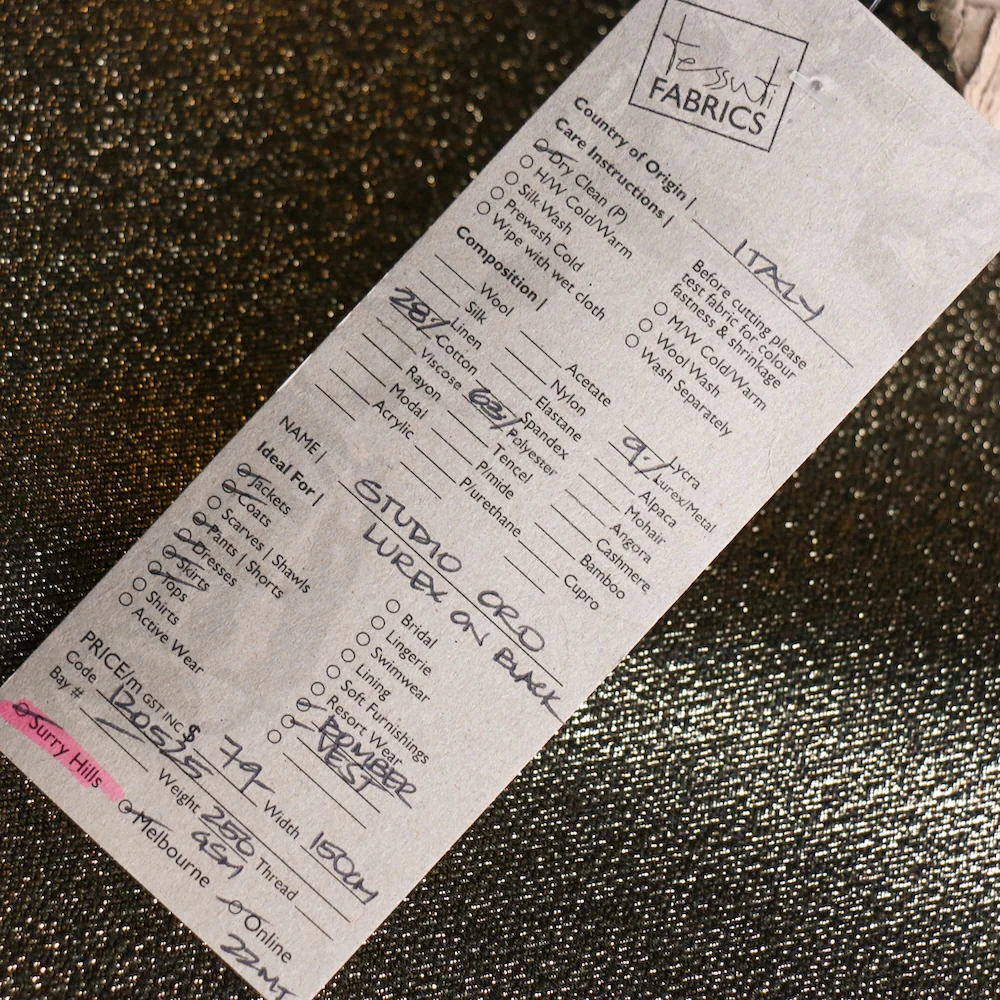 tessuti
FABRICS
Country of Origin | ITALY
Care Instructions |
Dry Clean (P)
H/W Cold/Warm
Silk Wash
Prewash Cold
Wipe with wet cloth
Before cutting please
test fabric for colour
fastness & shrinkage
M/W Cold/Warm
Wool Wash
Wash Separately
Composition |
Wool
Silk
Linen
28% Cotton
Viscose
Rayon
Modal
Acrylic
Acetate
Nylon
Elastane
Spandex
63% Polyester
Tencel
P/mide
P/urethane
Lycra
9% Lurex/Metal
Alpaca
Mohair
Angora
Cashmere
Bamboo
Cupro
NAME | STUDIO ORO
LUREX ON BLACK
Ideal For |
Jackets
Coats
Scarves | Shawls
Pants | Shorts
Dresses
Skirts
Tops
Shirts
Active Wear
Bridal
Lingerie
Swimwear
Lining
Soft Furnishings
Resort Wear
BOMBER
VEST
PRICE/m GST INC $ 79 Width 150cm
Code 120525 Weight 250 GSM Thread
Bay #
Surry Hills
Melbourne
Online
22MT